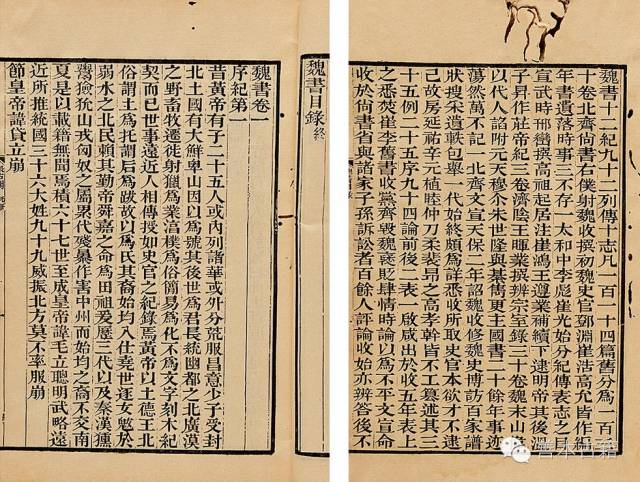 魏書十二紀九十二列傳十志凡一百一十四篇舊分爲一百三
十卷北齊尚書右僕射魏收撰初魏史官鄧淵崔浩高允皆作編
年書遺落時事三不存一太和中李彪崔光始分紀傳表志之目
宣武時邢巒撰高祖起居注崔鴻王遵業補續下逮明帝其後溫
子昇作莊帝紀三卷濟陰王暉業撰辨宗室錄三十卷魏末山偉
以代人諂附元天穆尒朱世隆與綦儁更主國書二十餘年事迹
蕩然萬不記一北齊文宣天保二年詔魏收修魏史博訪百家譜
狀搜采遺軼包舉一代始終頗爲詳悉收所取史官本欲才不逮
己故房延祐辛元植睦仲刀柔裴昂之高孝幹皆不工纂述其三
十五例二十五序九十四論前後二表一啟咸出於收五年表上
之悉焚崔李舊書收黨齊毀魏褒貶肆情時論以爲不平文宣命
收於尚書省與諸家子孫訴訟者百餘人評論收始亦辨答後不
魏書目錄終
魏書卷一
序紀第一
昔黃帝有子二十五人或內列諸華或外分荒服昌意少子受封
北土國有大鮮卑山因以爲號其後世爲君長統幽都之北廣漠
之野畜牧遷徙射獵爲業淳樸爲俗簡易爲化不爲文字刻木紀
契而已世事遠近人相傳授如史官之紀錄焉黃帝以土德王北
俗謂土爲托謂后爲跋故以爲氏其裔始均入仕堯世逐女魃於
弱水之北民賴其勤帝舜嘉之命爲田祖爰歷三代以及秦漢獯
鬻獫狁山戎匈奴之屬累代殘暴作害中州而始均之裔不交南
夏是以載籍無聞焉積六十七世至成皇帝諱毛立聰明武略遠
近所推統國三十六大姓九十九威振北方莫不率服崩
節皇帝諱貸立崩
善本古籍